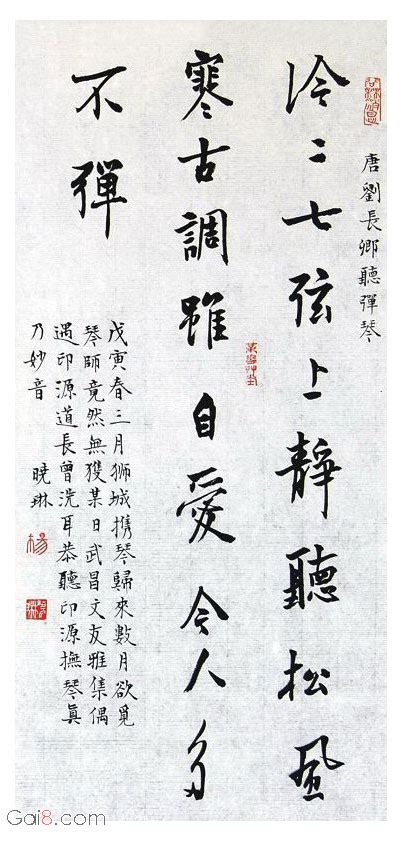 唐劉長卿聽彈琴
泠〻七弦上靜聽松風
寒古調雖自愛今人多
不彈
戊寅春三月狮城携琴歸來數月欲覓
琴師竟然無獲某日武昌文友雅集偶
遇印源道長曾洗耳恭聽印源撫琴眞
乃妙音 曉琳
楊
Gai8.com